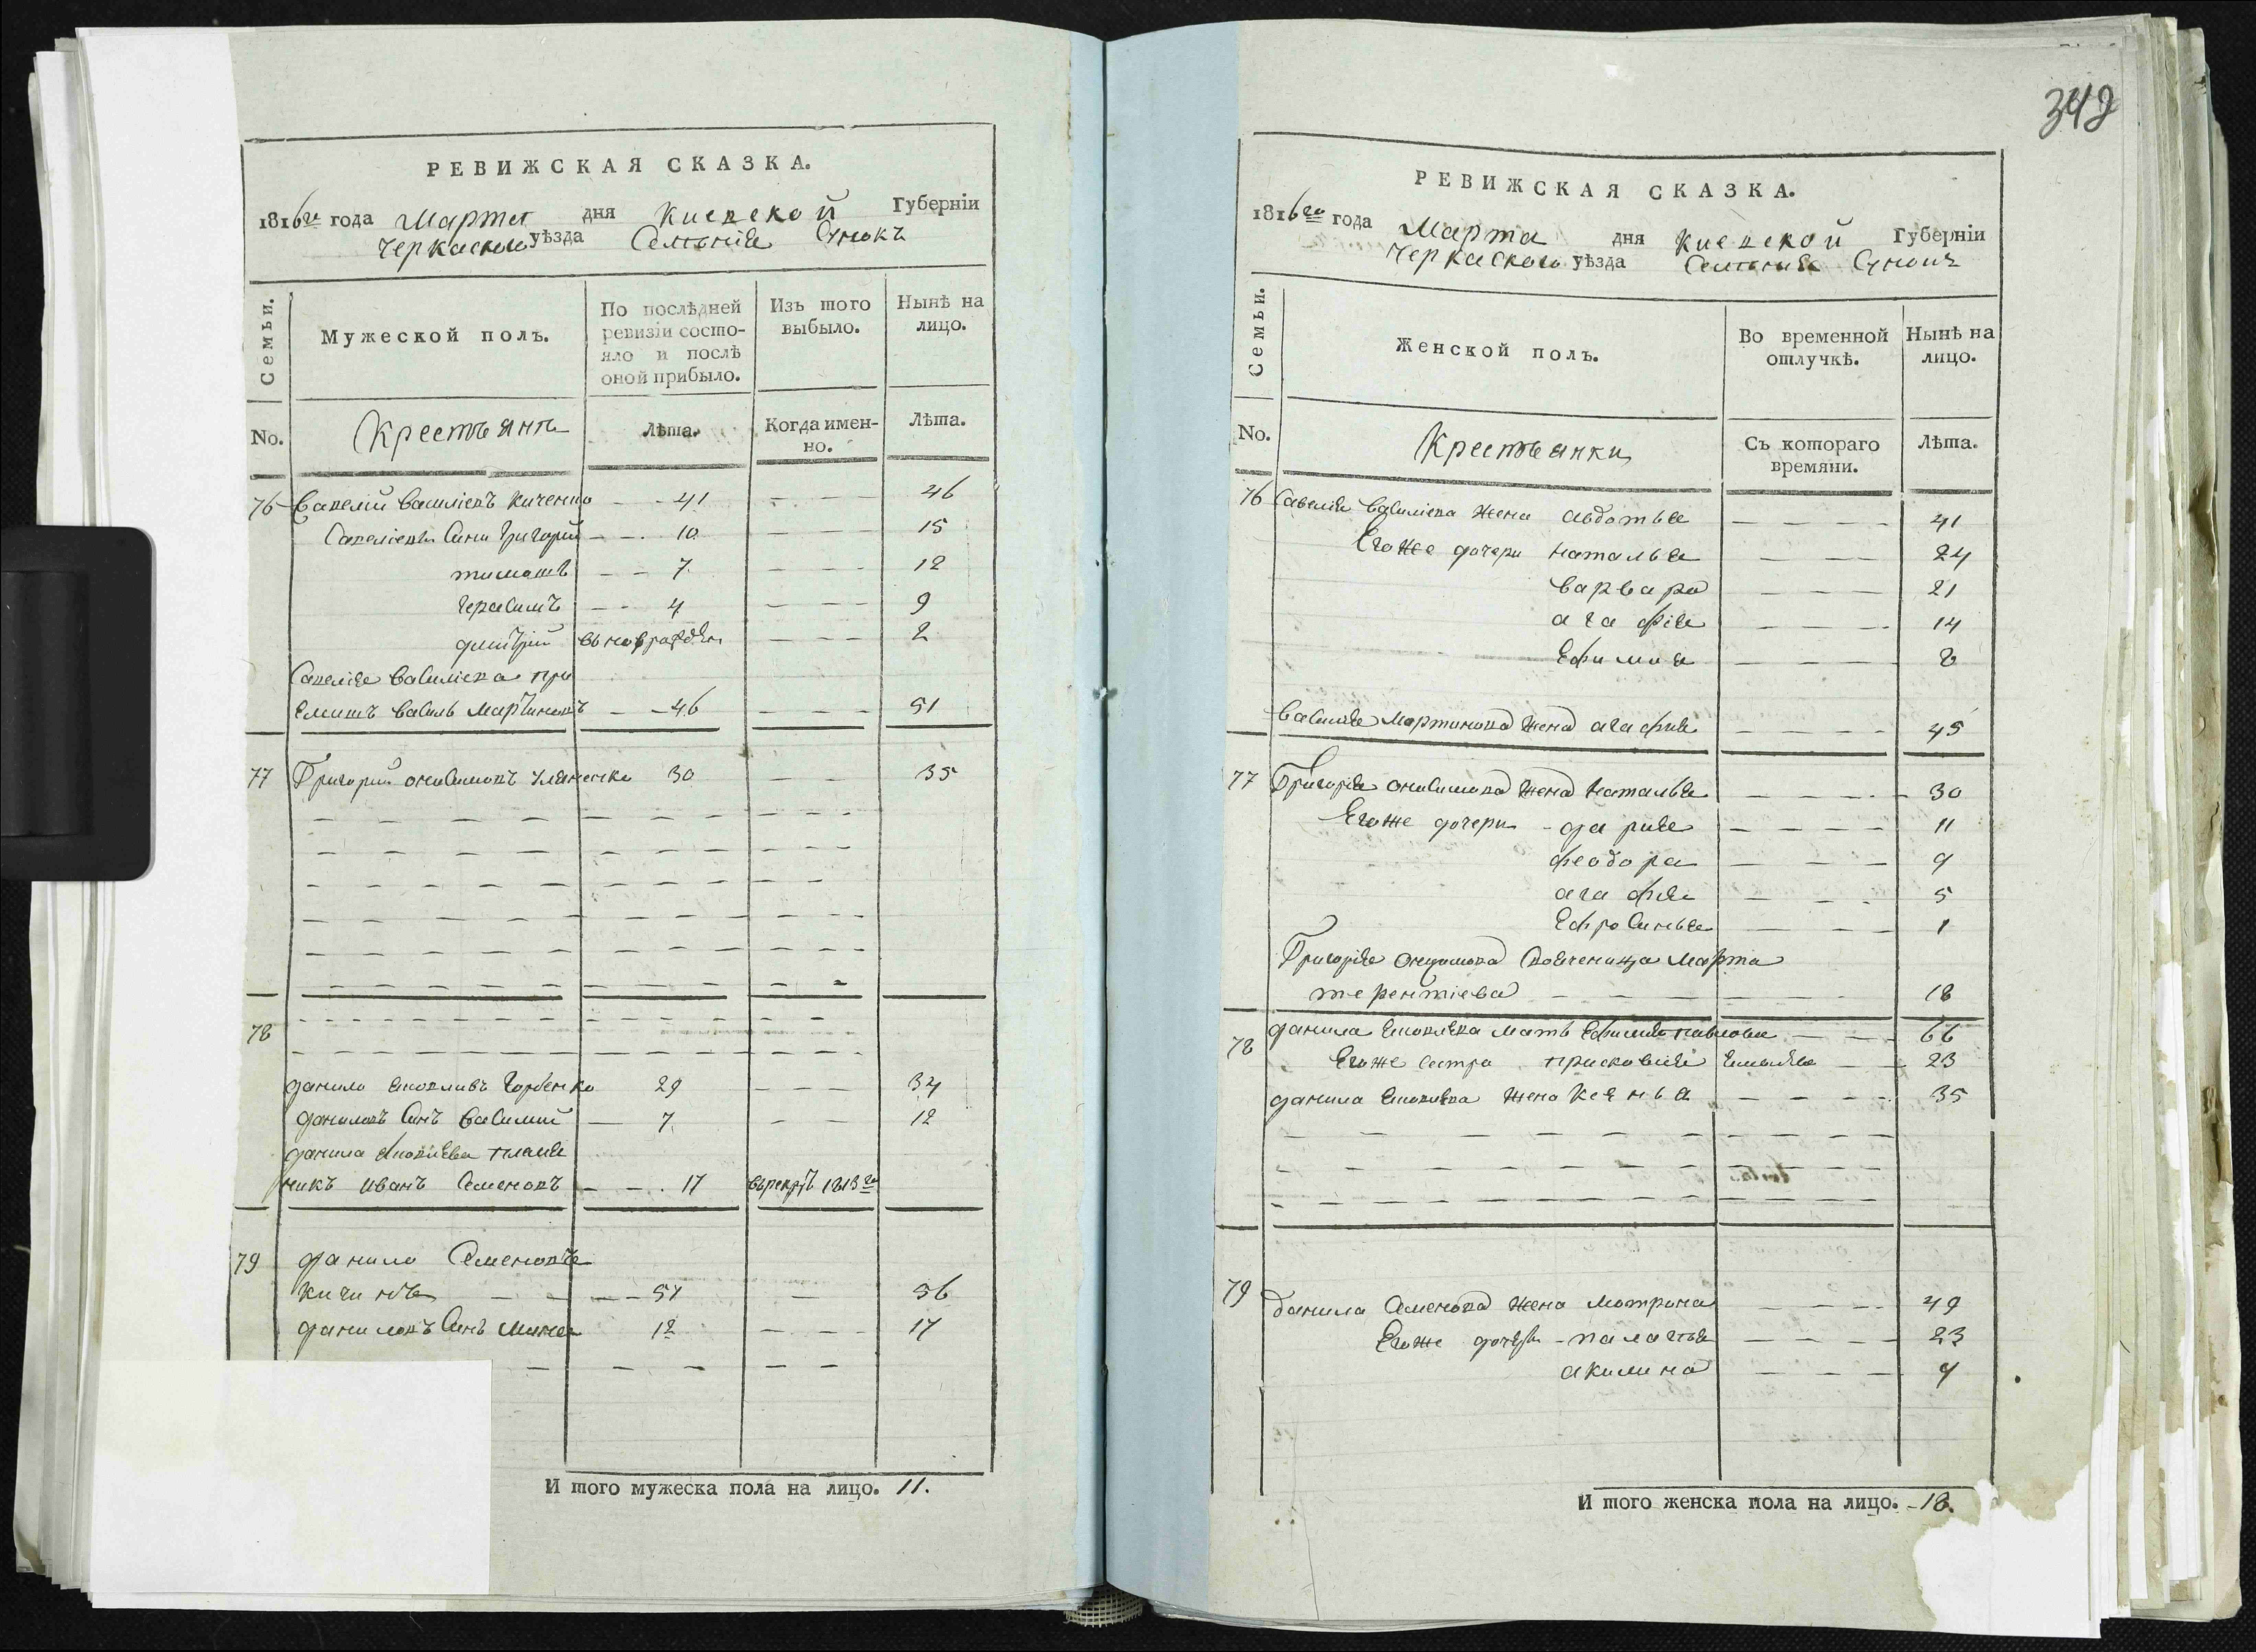 342
РЕВИЖСКАЯ СКАЗКА.
1816го года Марта дня Киевской Губерніи
Черкаского уѣзда Селенія Сунокъ
Семьи.
Мужеской полъ.
По послѣдней ревизіи состо-
яло и послѣ
оной прибыло.
Изъ того
выбыло.
Нынѣ на
лицо.
No.
Крестьяне
Лѣта.
Когда имен-
но.
Лѣта.
76 Савелій Василіевъ Киченко — 41 — 46
Савеліевы Сини Григорій — 10 — 15
тимошъ — 7 — 12
Герасимъ — 4 — 9
дмитрій вьноврожден — 2
Савелія Василіева при
Емишъ Василь Мартиновъ — 46 — 51
77 Григорий онисимовъ Уляненко 30 — 35
78
данило Яковливъ Горбенко 29 — 34
даниловъ Синъ Василий — 7 — 12
данила Яковлева племя
никъ Иванъ Семеновъ — 17 врекрутъ 1813го
79 данило Семеновъ
51 — 56
даниловъ Синъ Мина 12 — 17
И того мужеска пола на лицо. 11.
РЕВИЖСКАЯ СКАЗКА.
1816го года Марта дня Киевской Губерніи
Черкаского уѣзда Селения Сунокъ
Семьи.
Женской полъ.
Во временной
отлучкѣ.
Нынѣ на
лицо.
No.
Крестьянки
Съ котораго
времяни.
Лѣта.
76 Савелия Василиева жена авдотья — 41
Егоже дочери наталья — 24
варвара — 21
агафія — 14
Ефимия — 8
Василия Мартинова жена агафия — 45
77 Григорія онисимова жена Наталья — 30
Егоже дочери дария — 11
феодора — 9
агафия — 5
Ефросинья — 1
Григорія онисимова Своячепица Марта
терентіева — 18
78 данила Яковлева мать Ефимия павлова — 66
Егоже сестра прасковия Яковлева — 23
данила Яковлева жена Ксенья — 35
79 данила Семенова жена Мотрона — 49
Егоже дочери палагья — 23
акилина — 9
И того женска пола на лицо. 18.